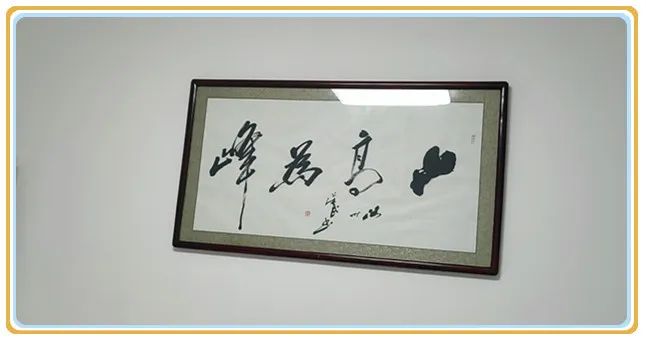 山高為峰